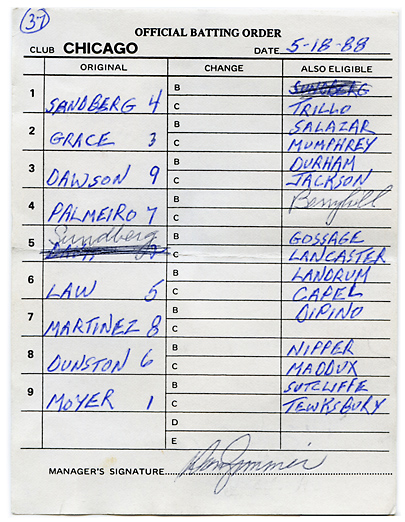 37
OFFICIAL BATTING ORDER
CLUB CHICAGO DATE 5-18-88
ORIGINAL CHANGE ALSO ELIGIBLE
1 SANDBERG 4 B SUNDBERG
C TRILLO
2 GRACE 3 B SALAZAR
C MUMPHREY
3 DAWSON 9 B DURHAM
C JACKSON
4 PALMEIRO 7 B Berryhill
C
5 Sundberg B GOSSAGE
C LANCASTER
6 LAW 5 B LANDRUM
C CAPEL
7 MARTINEZ 8 B DIPINO
C
8 DUNSTON 6 B NIPPER
C MADDUX
9 MOYER 1 B SUTCLIFFE
C TEWKSBURY
D
E
MANAGER'S SIGNATURE Don Zimmer